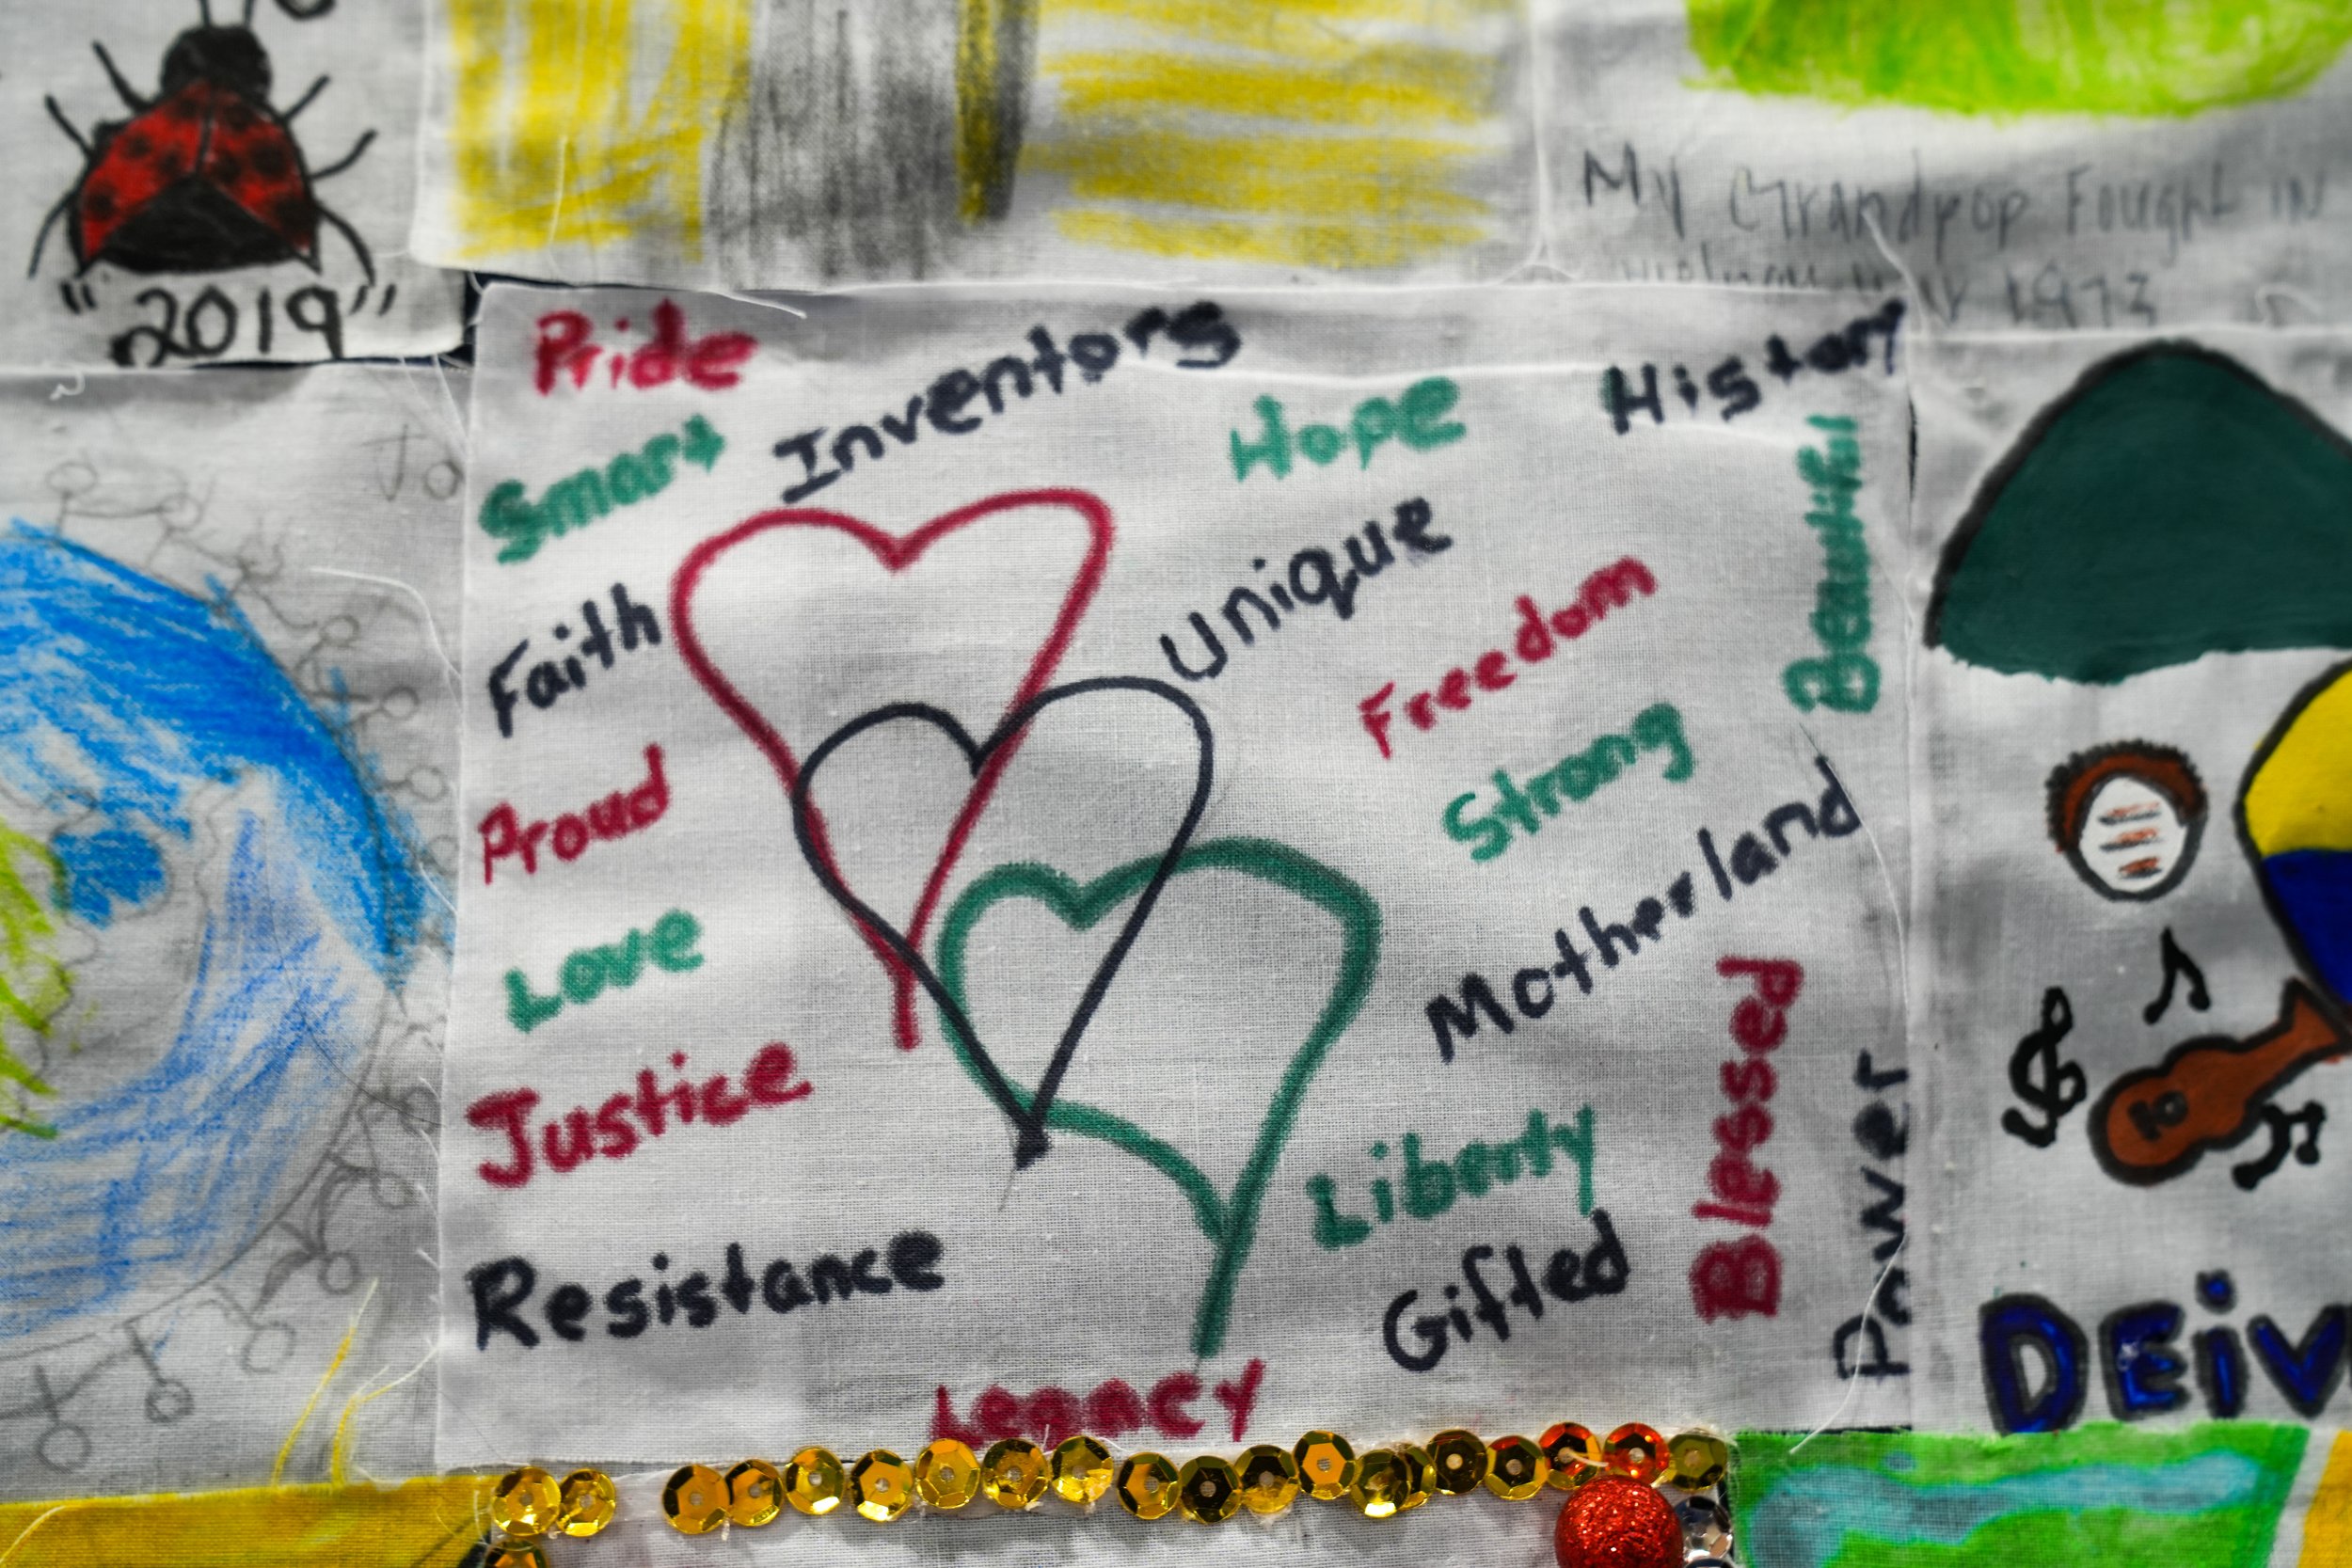 "2019"
My Grandpop Fought in
1973
To
Pride
Inventors
Hope
History
Smart
Beautiful
Unique
Faith
Freedom
Proud
Strong
Motherland
Love
Justice
Blessed
Liberty
Power
Resistance
Gifted
Legacy
DEiV